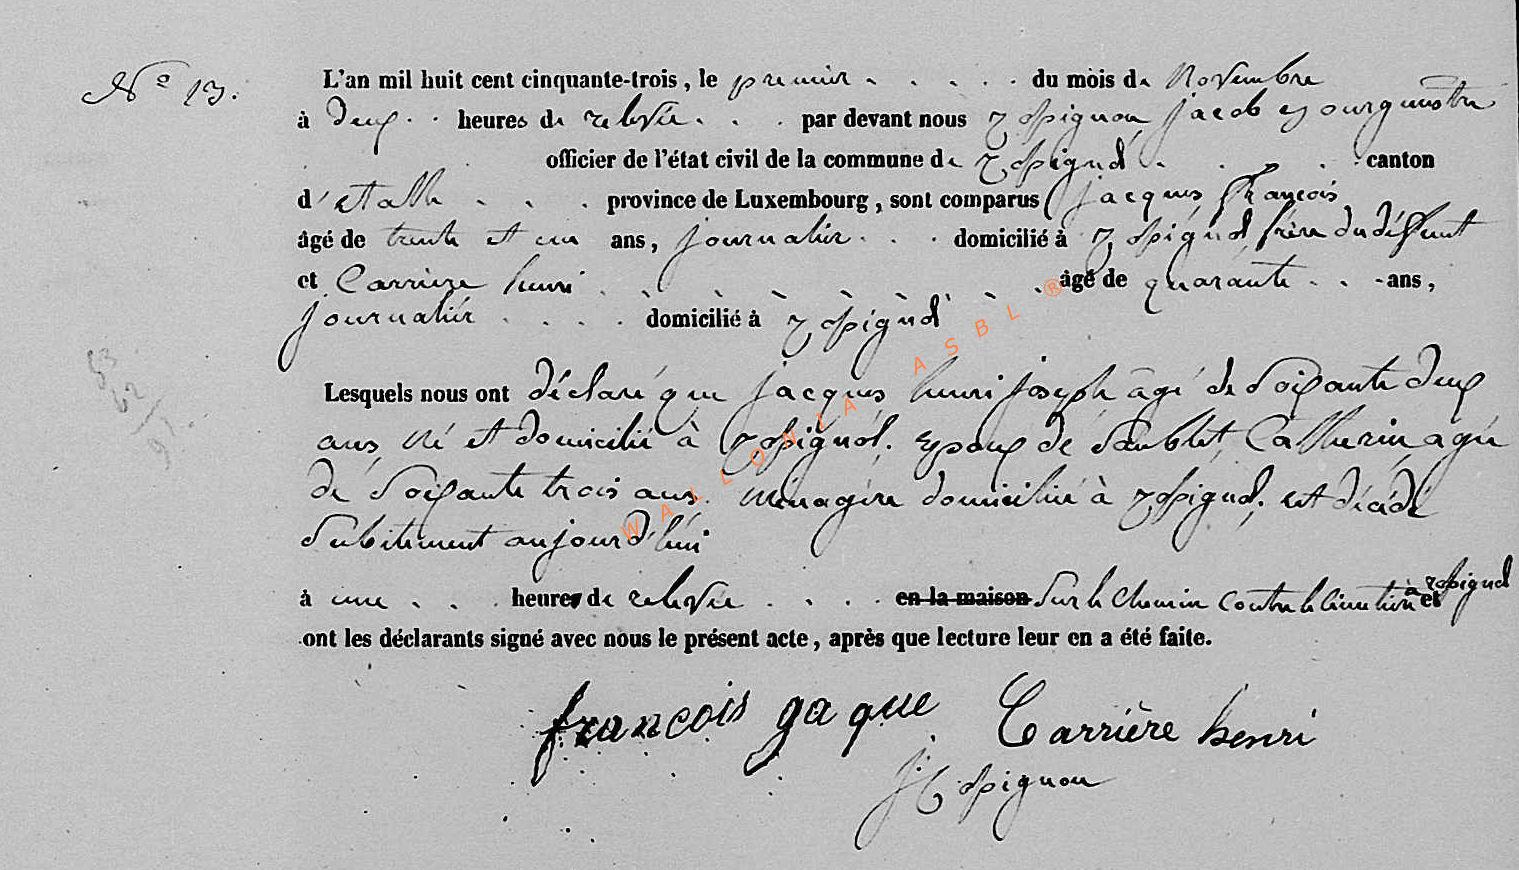 N° 13.
L'an mil huit cent cinquante-trois, le premier du mois de Novembre
à deux heures de relevée par devant nous Rossignon Jacob Bourgmestre
officier de l'état civil de la commune de Rossignol canton
d'Etalle province de Luxembourg, sont comparus Jacques François
âgé de trente et un ans, journalier domicilié à Rossignol frère du défunt
et Carrière henri âgé de quarante ans,
journalier domicilié à Rossignol
Lesquels nous ont déclaré que jacques henri joseph âgé de Soixante deux
ans, né et domicilié à Rossignol. Epoux de Catherine agée
de Soixante trois ans. Ménagère domiciliée à Rossignol, est décédé
Subitement aujourd'hui
à une heure de relevée en la maison Sur le chemin contre le à Rossignol et
ont les déclarants signé avec nous le présent acte, après que lecture leur en a été faite.
françois gaque Carrière henri
J Rossignon
53
62
91
WALLONIA ASBL ®